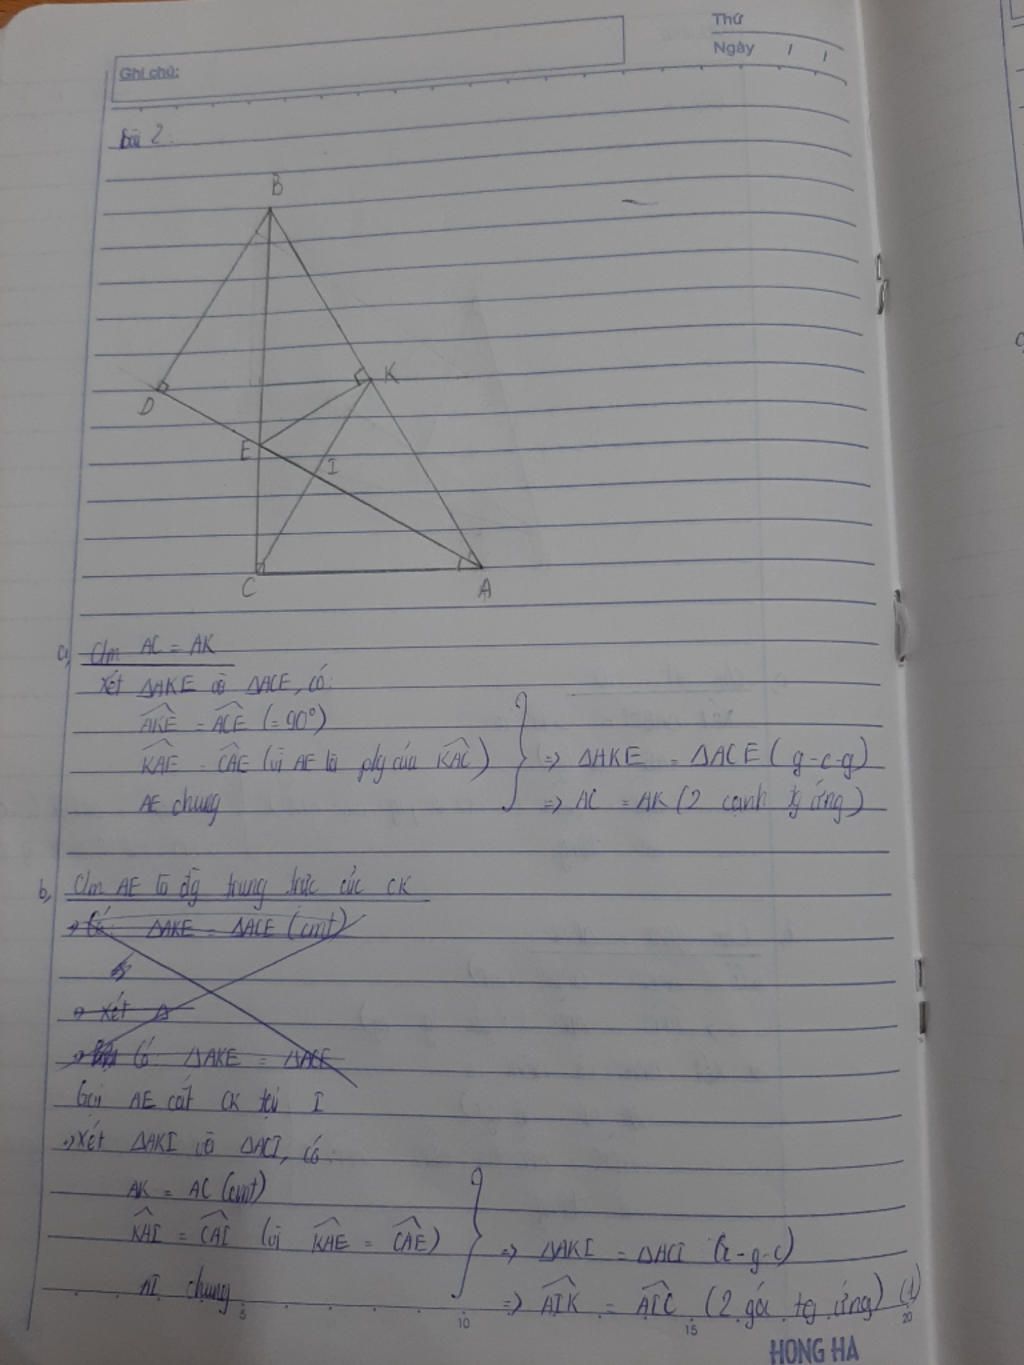 Thứ
Ngày / /
Ghi chú:
Bài 2:
B
D
K
E
I
C
A
a, C/m AC = AK
Xét ΔAKE và ΔACE, có:
\widehat{AKE} = \widehat{ACE} (=90°)
\widehat{KAE} = \widehat{CAE} (vì AE là pg của \widehat{KAC}) => ΔAKE = ΔACE (g-c-g)
AE chung => AC = AK (2 cạnh tg ứng)
b, C/m AE là đg trung trực của CK
→ Có: ΔAKE = ΔACE (cmt)
→ Xét Δ
Có: ΔAKE = ΔACE
Gọi AE cắt CK tại I
→ Xét ΔAKI và ΔACI, có:
AK = AC (cmt)
\widehat{KAI} = \widehat{CAI} (vì \widehat{KAE} = \widehat{CAE}) => ΔAKI = ΔACI (c-g-c)
AI chung => \widehat{AIK} = \widehat{AIC} (2 góc tg ứng) (1)
5 10 15 20
HONG HA